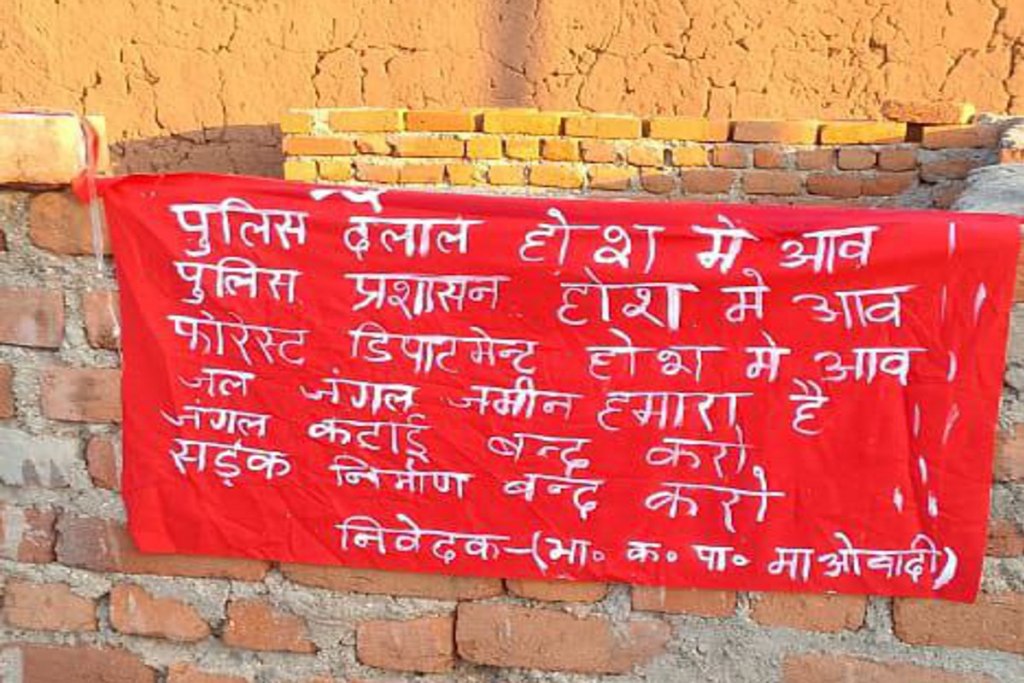 पुलिस दलाल होश में आव ।
पुलिस प्रशासन होश मे आव ।।
फोरेस्ट डिपाटमेन्ट होश मे आव ।
जल जंगल जमीन हमारा है ।।
जंगल कटाई बन्द करो ।
सड़क निर्माण बन्द करो ।।
निवेदक-(भा॰ क॰ पा॰ माओवादी)